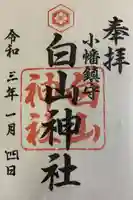 奉拝
小幡鎮守
白山神社
白山
神社
令和三年一月四日